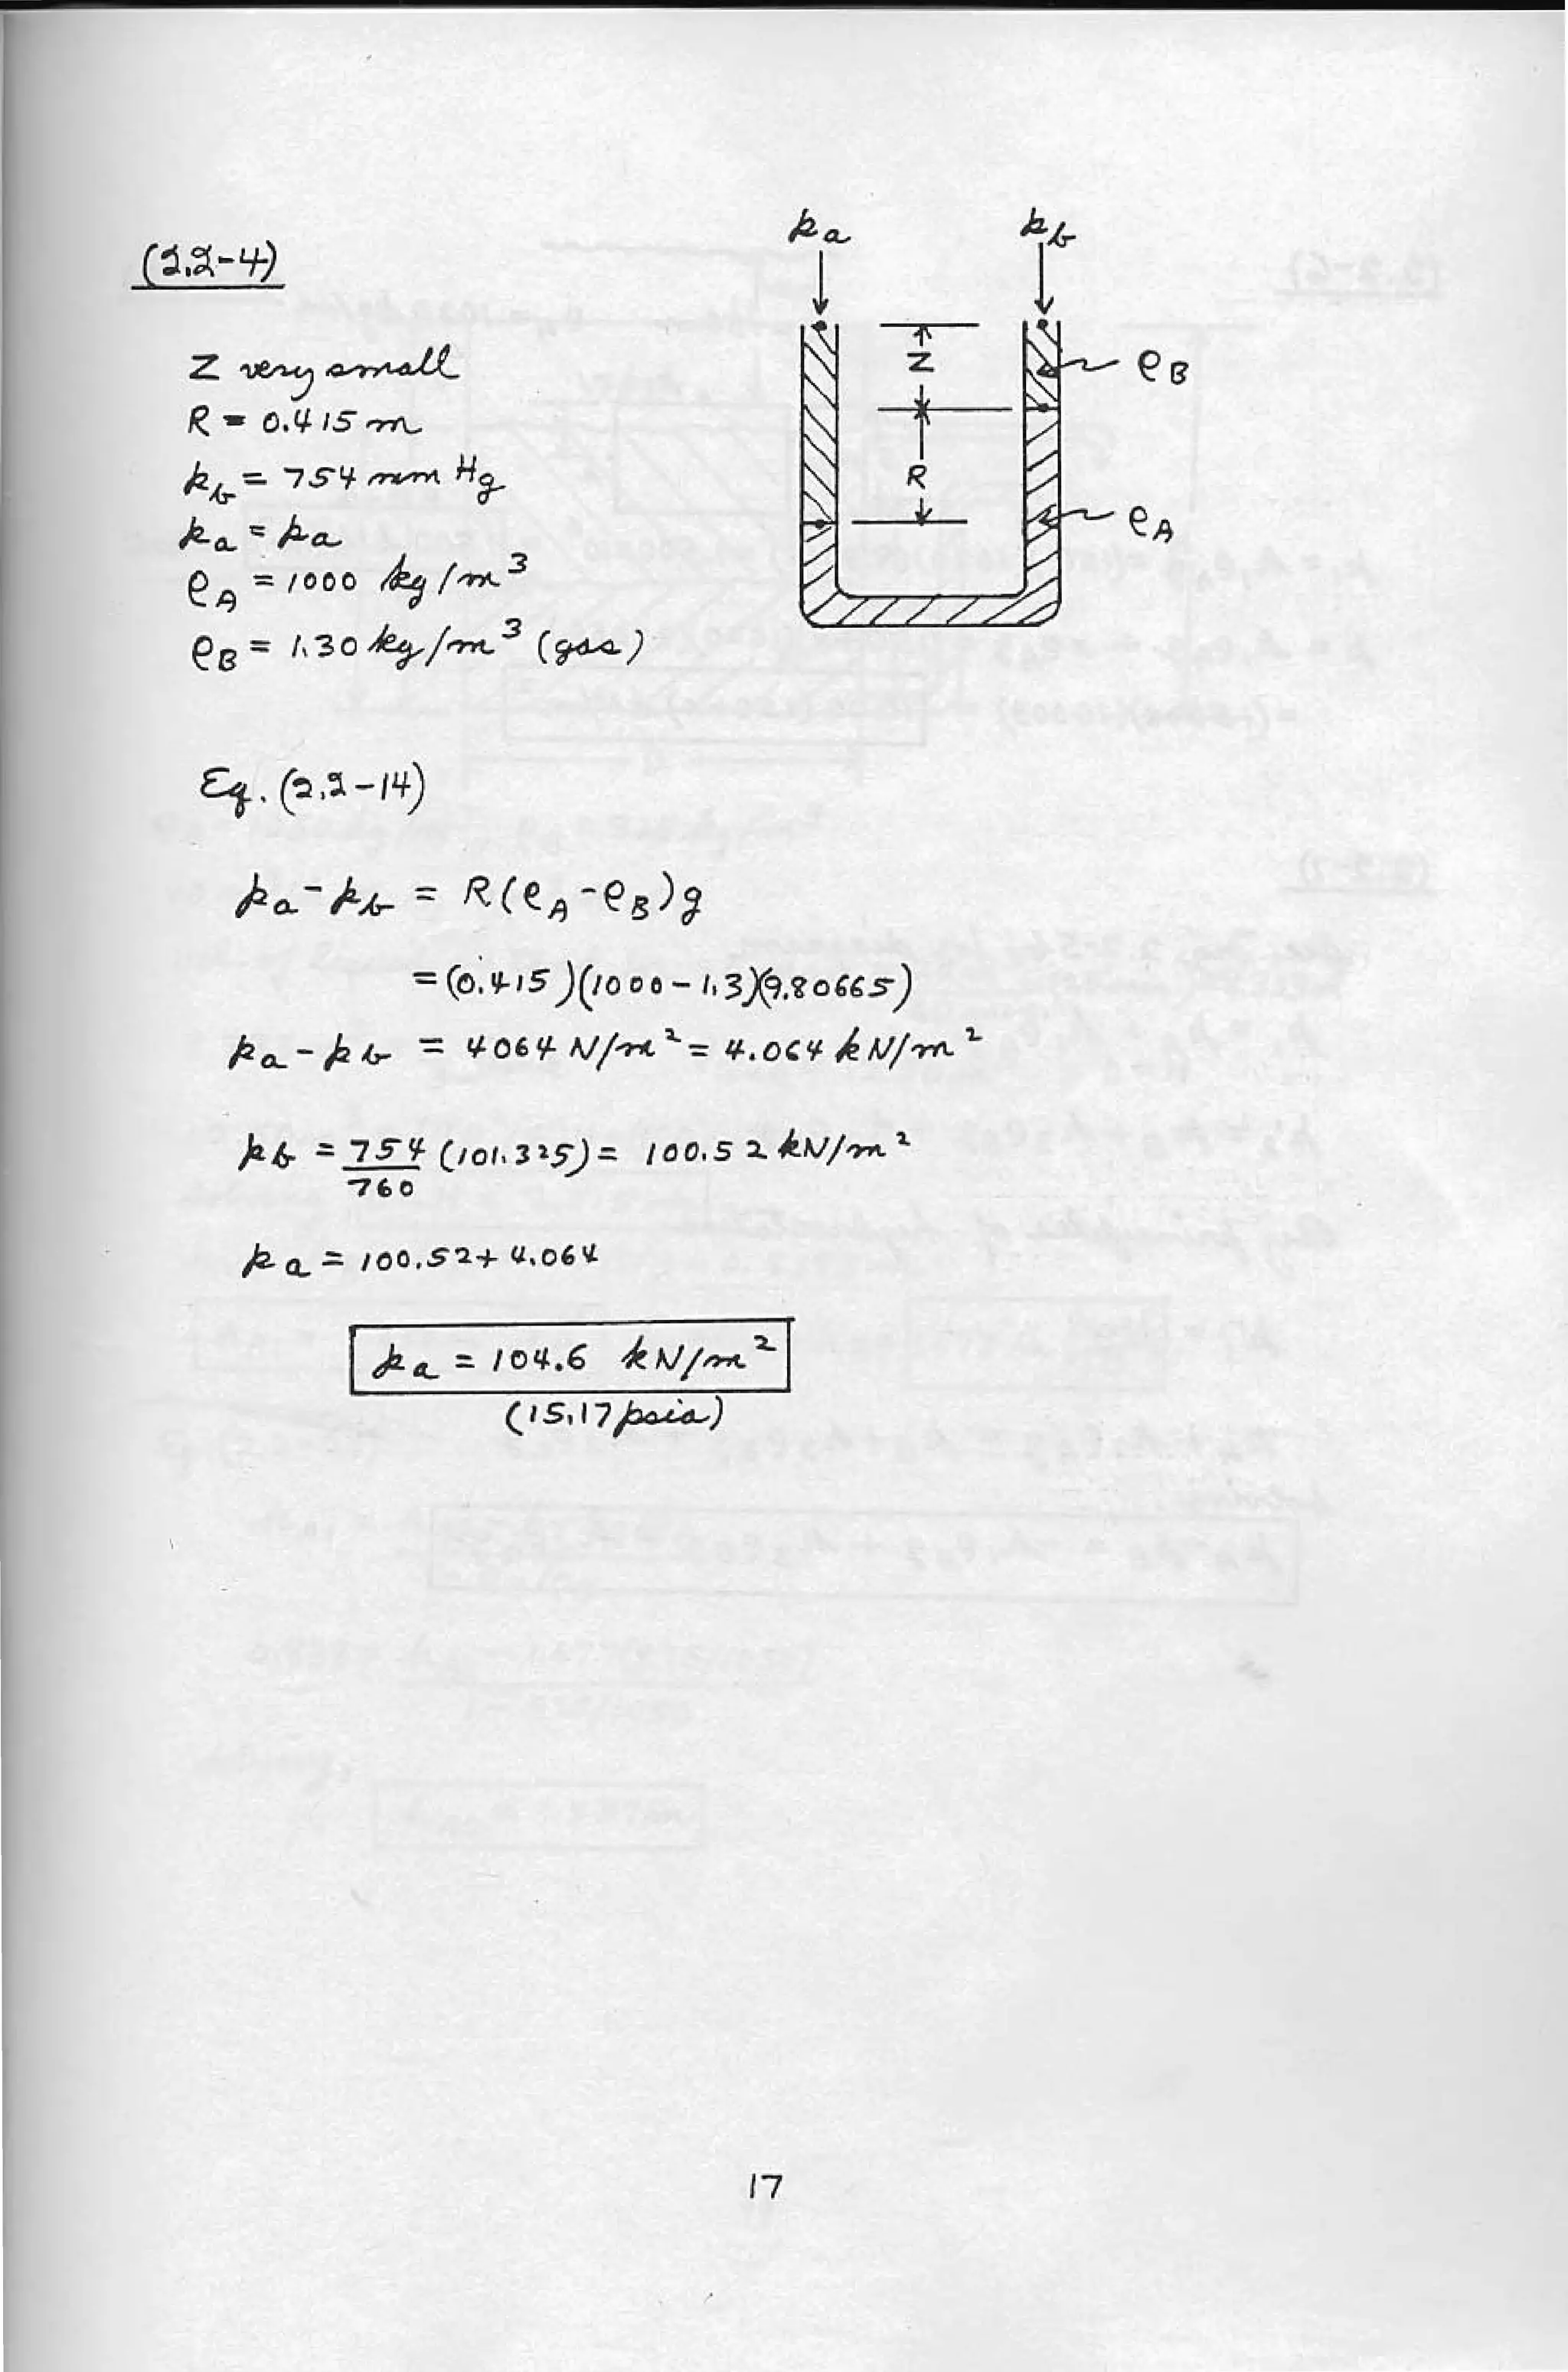 (2.2-4)
Z very small
R = 0.415 m
pb = 754 mm Hg
pa = pa
ρA = 1000 kg/m³
ρB = 1.30 kg/m³ (gas)
pa
pb
Z
ρB
R
ρA
Eq. (2.2-14)
pa - pb = R(ρA - ρB)g
= (0.415)(1000 - 1.3)(9.80665)
pa - pb = 4064 N/m² = 4.064 kN/m²
pb = 754/760 (101.325) = 100.52 kN/m²
pa = 100.52 + 4.064
pa = 104.6 kN/m²
(15.17 psia)
17